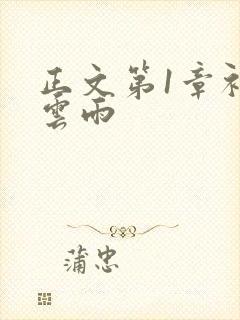 正文第1章初
雲雨
蒲忠